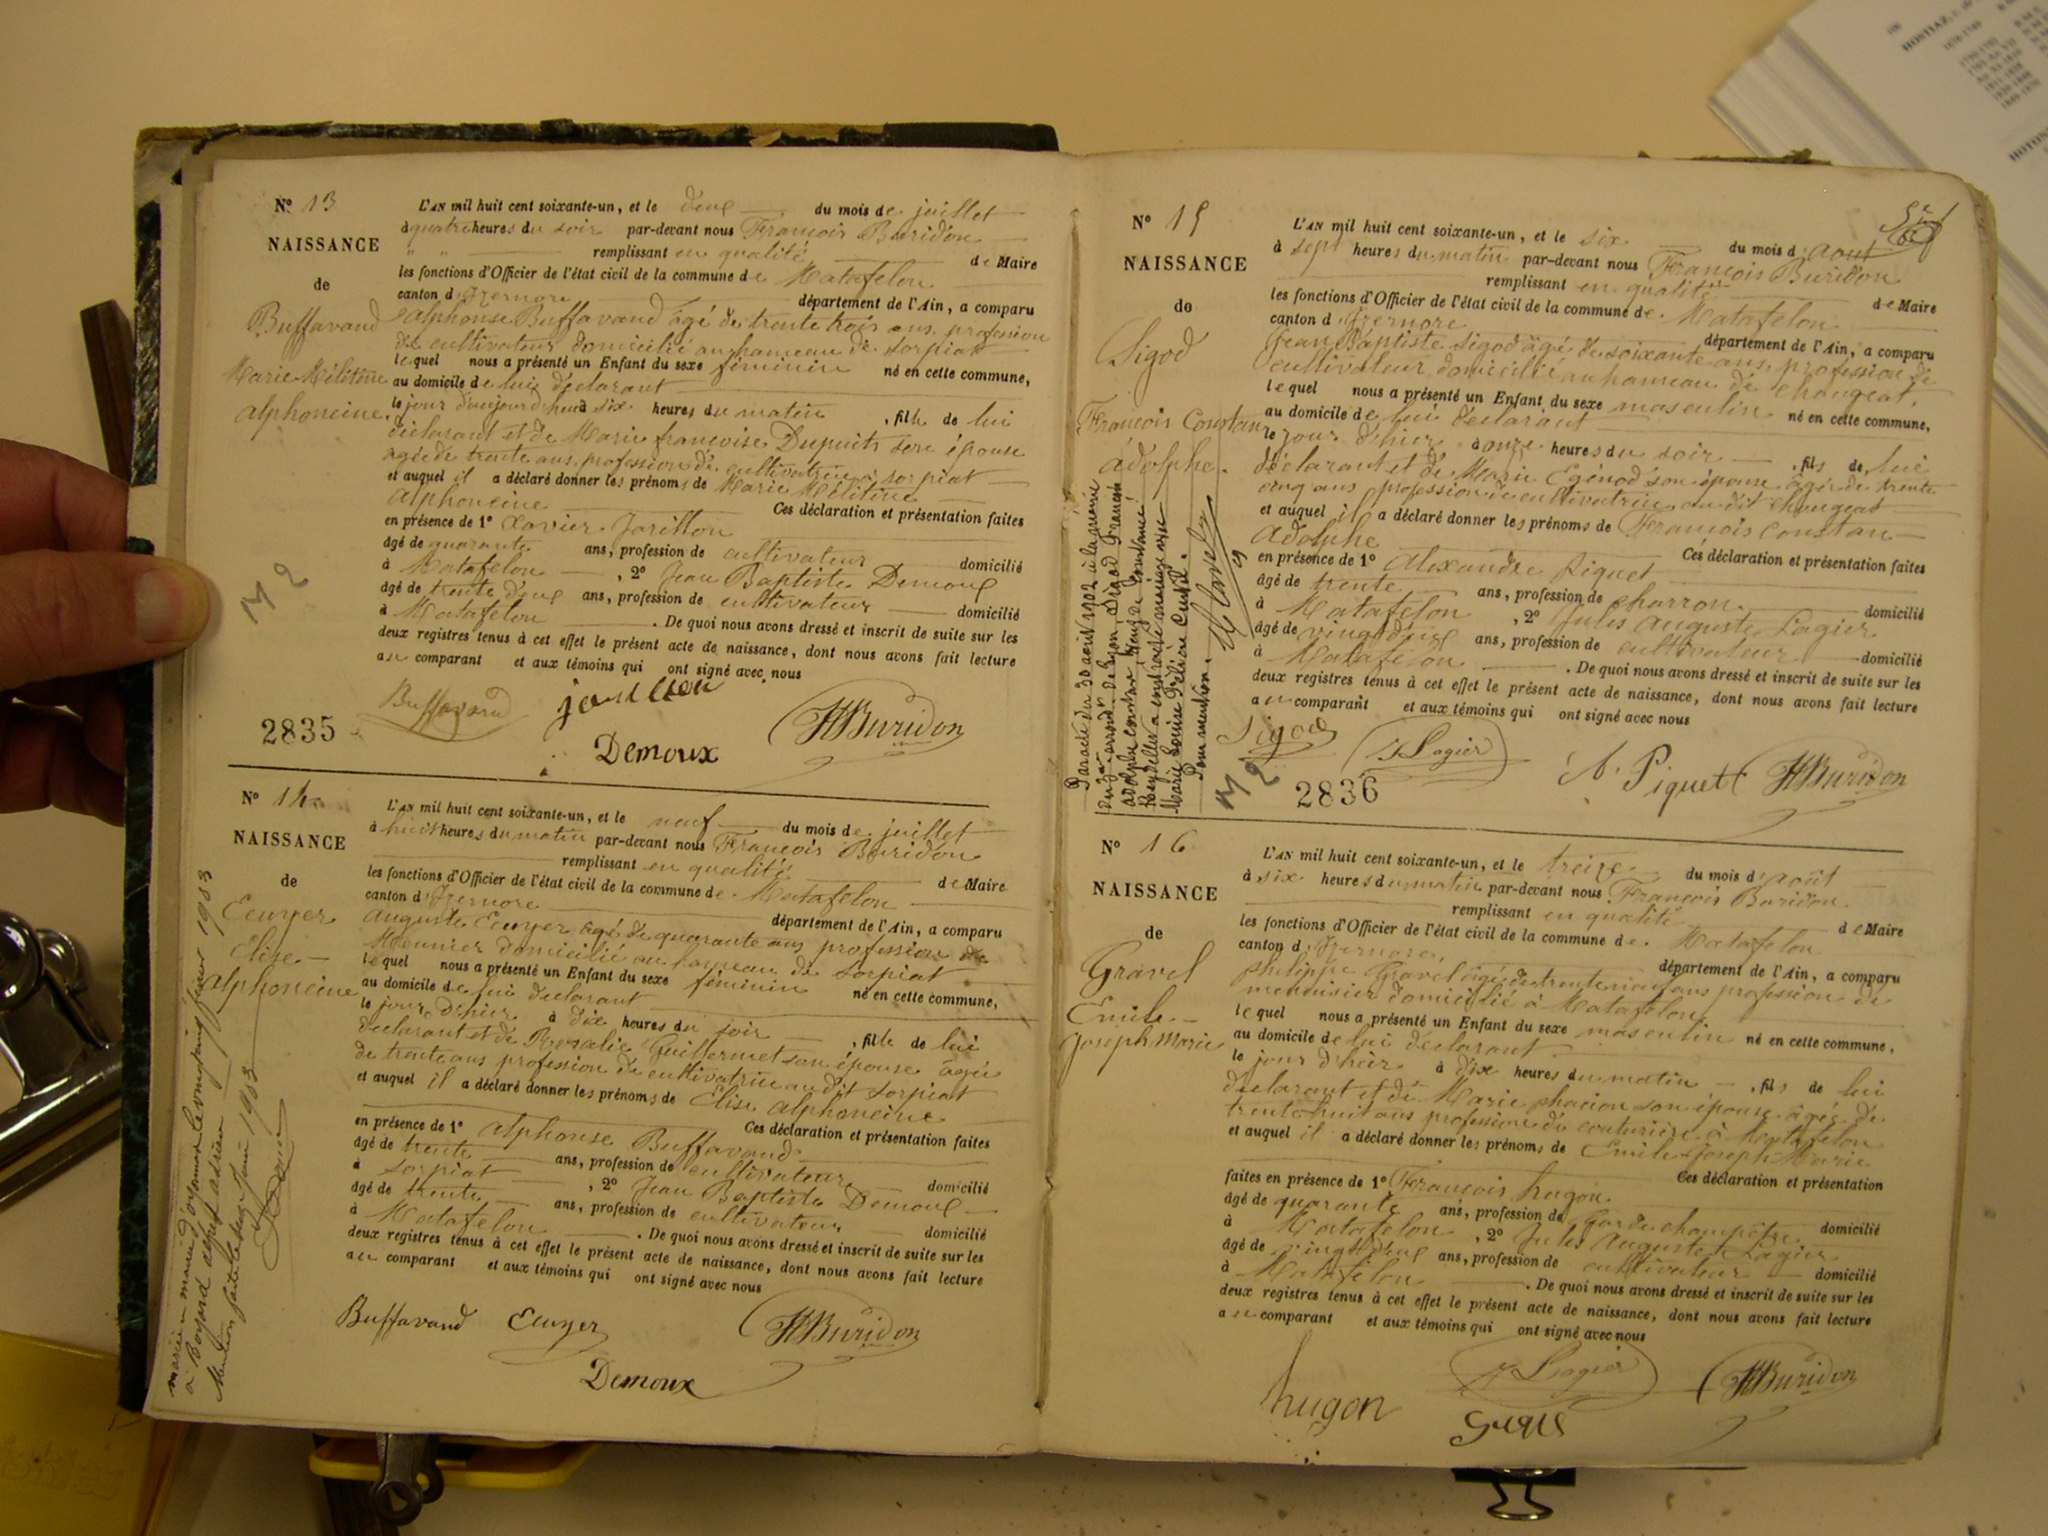 Nº 13
NAISSANCE
de
Buffavand
Marie Mélitine
alphoncine
L'AN mil huit cent soixante-un, et le deux du mois de juillet
à quatre heures du soir par-devant nous François Buridon
remplissant en qualité de Maire
les fonctions d'Officier de l'état civil de la commune de Matafelon
canton d'Izernore département de l'Ain, a comparu
alphonse Buffavand âgé de trente trois ans, profession
de cultivateur domicilié au hameau de sorpiat
lequel nous a présenté un Enfant du sexe féminin né en cette commune,
au domicile de lui déclarant
le jour d'aujourd'hui à six heures du matin, fille de lui
déclarant et de Marie françoise Dupuits son épouse
âgée de trente ans, profession de cultivatrice à sorpiat
et auquel il a déclaré donner les prénoms de Marie Mélitine
alphoncine Ces déclaration et présentation faites
en présence de 1º Xavier Jarillon
âgé de quarante ans, profession de cultivateur domicilié
à Matafelon, 2º Jean Baptiste Demoux
âgé de trente deux ans, profession de cultivateur domicilié
à Matafelon. De quoi nous avons dressé et inscrit de suite sur les
deux registres tenus à cet effet le présent acte de naissance, dont nous avons fait lecture
au comparant et aux témoins qui ont signé avec nous
Buffavand jarillon
Demoux HBuridon
2835
M 2
Nº 14
NAISSANCE
de
Ecuyer
Elise
alphoncine
L'AN mil huit cent soixante-un, et le neuf du mois de juillet
à huit heures du matin par-devant nous François Buridon
remplissant en qualité de Maire
les fonctions d'Officier de l'état civil de la commune de Matafelon
canton d'Izernore département de l'Ain, a comparu
auguste Ecuyer âgé de quarante ans profession de
Meunier domicilié au hameau de sorpiat
lequel nous a présenté un Enfant du sexe féminin né en cette commune,
au domicile de lui déclarant
le jour d'hier à dix heures du soir, fille de lui
déclarant et de Rosalie Guillermet son épouse âgée
de trente ans profession de cultivatrice au dit sorpiat
et auquel il a déclaré donner les prénoms de Elise alphoncine
Ces déclaration et présentation faites
en présence de 1º alphonse Buffavand
âgé de trente ans, profession de cultivateur domicilié
à sorpiat, 2º Jean Baptiste Demoux
âgé de trente ans, profession de cultivateur domicilié
à Matafelon. De quoi nous avons dressé et inscrit de suite sur les
deux registres tenus à cet effet le présent acte de naissance, dont nous avons fait lecture
au comparant et aux témoins qui ont signé avec nous
Buffavand Ecuyer HBuridon
Demoux
mariée en mairie d'oyonnax le vingt cinq février 1903
à Bossard adrien
Mention faite le deux Juin 1903
Nº 15
NAISSANCE
de
Sigod
François Constan
adolphe
L'AN mil huit cent soixante-un, et le six du mois d'aout
à sept heures du matin par-devant nous François Buridon
remplissant en qualité de Maire
les fonctions d'Officier de l'état civil de la commune de Matafelon
canton d'Izernore département de l'Ain, a comparu
Jean Baptiste Sigod âgé de soixante ans, profession de
cultivateur, domicilié au hameau de Chougeat,
lequel nous a présenté un Enfant du sexe masculin né en cette commune,
au domicile de lui déclarant
le jour d'hier à onze heures du soir, fils de lui
déclarant et de Marie Egénod son épouse âgée de trente
cinq ans profession de cultivatrice au dit Chougeat
et auquel il a déclaré donner les prénoms de François Constan
adolphe Ces déclaration et présentation faites
en présence de 1º Alexandre Piquet
âgé de trente ans, profession de charron domicilié
à Matafelon, 2º Jules auguste Lagier
âgé de vingt deux ans, profession de cultivateur domicilié
à Matafelon. De quoi nous avons dressé et inscrit de suite sur les
deux registres tenus à cet effet le présent acte de naissance, dont nous avons fait lecture
au comparant et aux témoins qui ont signé avec nous
Sigod J Lagier A. Piquet HBuridon
2836
M 2
Par acte du 30 août 1902 à la mairie
du arrondt de Lyon, Sigod François
adolphe constan, veuf de
a contracté mariage avec
Marie Louise Félicie
Pour mention.
Nº 16
NAISSANCE
de
Gravel
Emile
Joseph Marie
L'AN mil huit cent soixante-un, et le treize du mois d'août
à six heures du matin par-devant nous François Buridon
remplissant en qualité de Maire
les fonctions d'Officier de l'état civil de la commune de Matafelon
canton d'Izernore, département de l'Ain, a comparu
philippe Gravel âgé de trente neuf ans profession de
menuisier domicilié à Matafelon
lequel nous a présenté un Enfant du sexe masculin né en cette commune,
au domicile de lui déclarant
le jour d'hier à dix heures du matin, fils de lui
déclarant et de Marie phacion son épouse âgée de
trente huit ans profession de couturière à Matafelon
et auquel il a déclaré donner les prénoms de Emile Joseph Marie
Ces déclaration et présentation
faites en présence de 1º François hugon
âgé de quarante ans, profession de Garde champêtre domicilié
à Matafelon, 2º Jules Auguste Lagier
âgé de vingt deux ans, profession de cultivateur domicilié
à Matafelon. De quoi nous avons dressé et inscrit de suite sur les
deux registres tenus à cet effet le présent acte de naissance, dont nous avons fait lecture
au comparant et aux témoins qui ont signé avec nous
J Lagier HBuridon
hugon